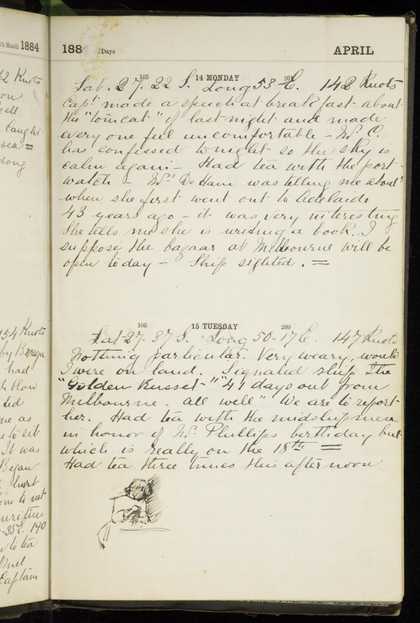 1884
188 Days
APRIL
105 14 MONDAY 261
Lat. 27. 22 S. Long 53 E. 142 Knots
Capt made a speech at breakfast about
the "tomcat" of last night and made
every one feel uncomfortable - Mr C.
has confessed tonight so the sky is
calm again. - Had tea with the port
watch - Mrs Ds Ham was telling me about
when she first went out to Adelaide
43 years ago - it was very interesting
She tells me she is writing a book. I
suppose the bazaar at Melbourne will be
open today - Ship sighted. =
106 15 TUESDAY 260
Lat 27. 37 S. Long 50-17 E. 147 Knots
Nothing particular. Very weary, would
I were on land. Signaled ship the
"Golden Russet" "41 days out from
Melbourne. all well" We are to report
her. Had tea with the midshipmen
in honor of Mr Phillips birthday but
which is really on the 18th =
Had tea three times this afternoon
42 Knots
154 Knots
by Began
had
It was
Began
140
to tea
Captain